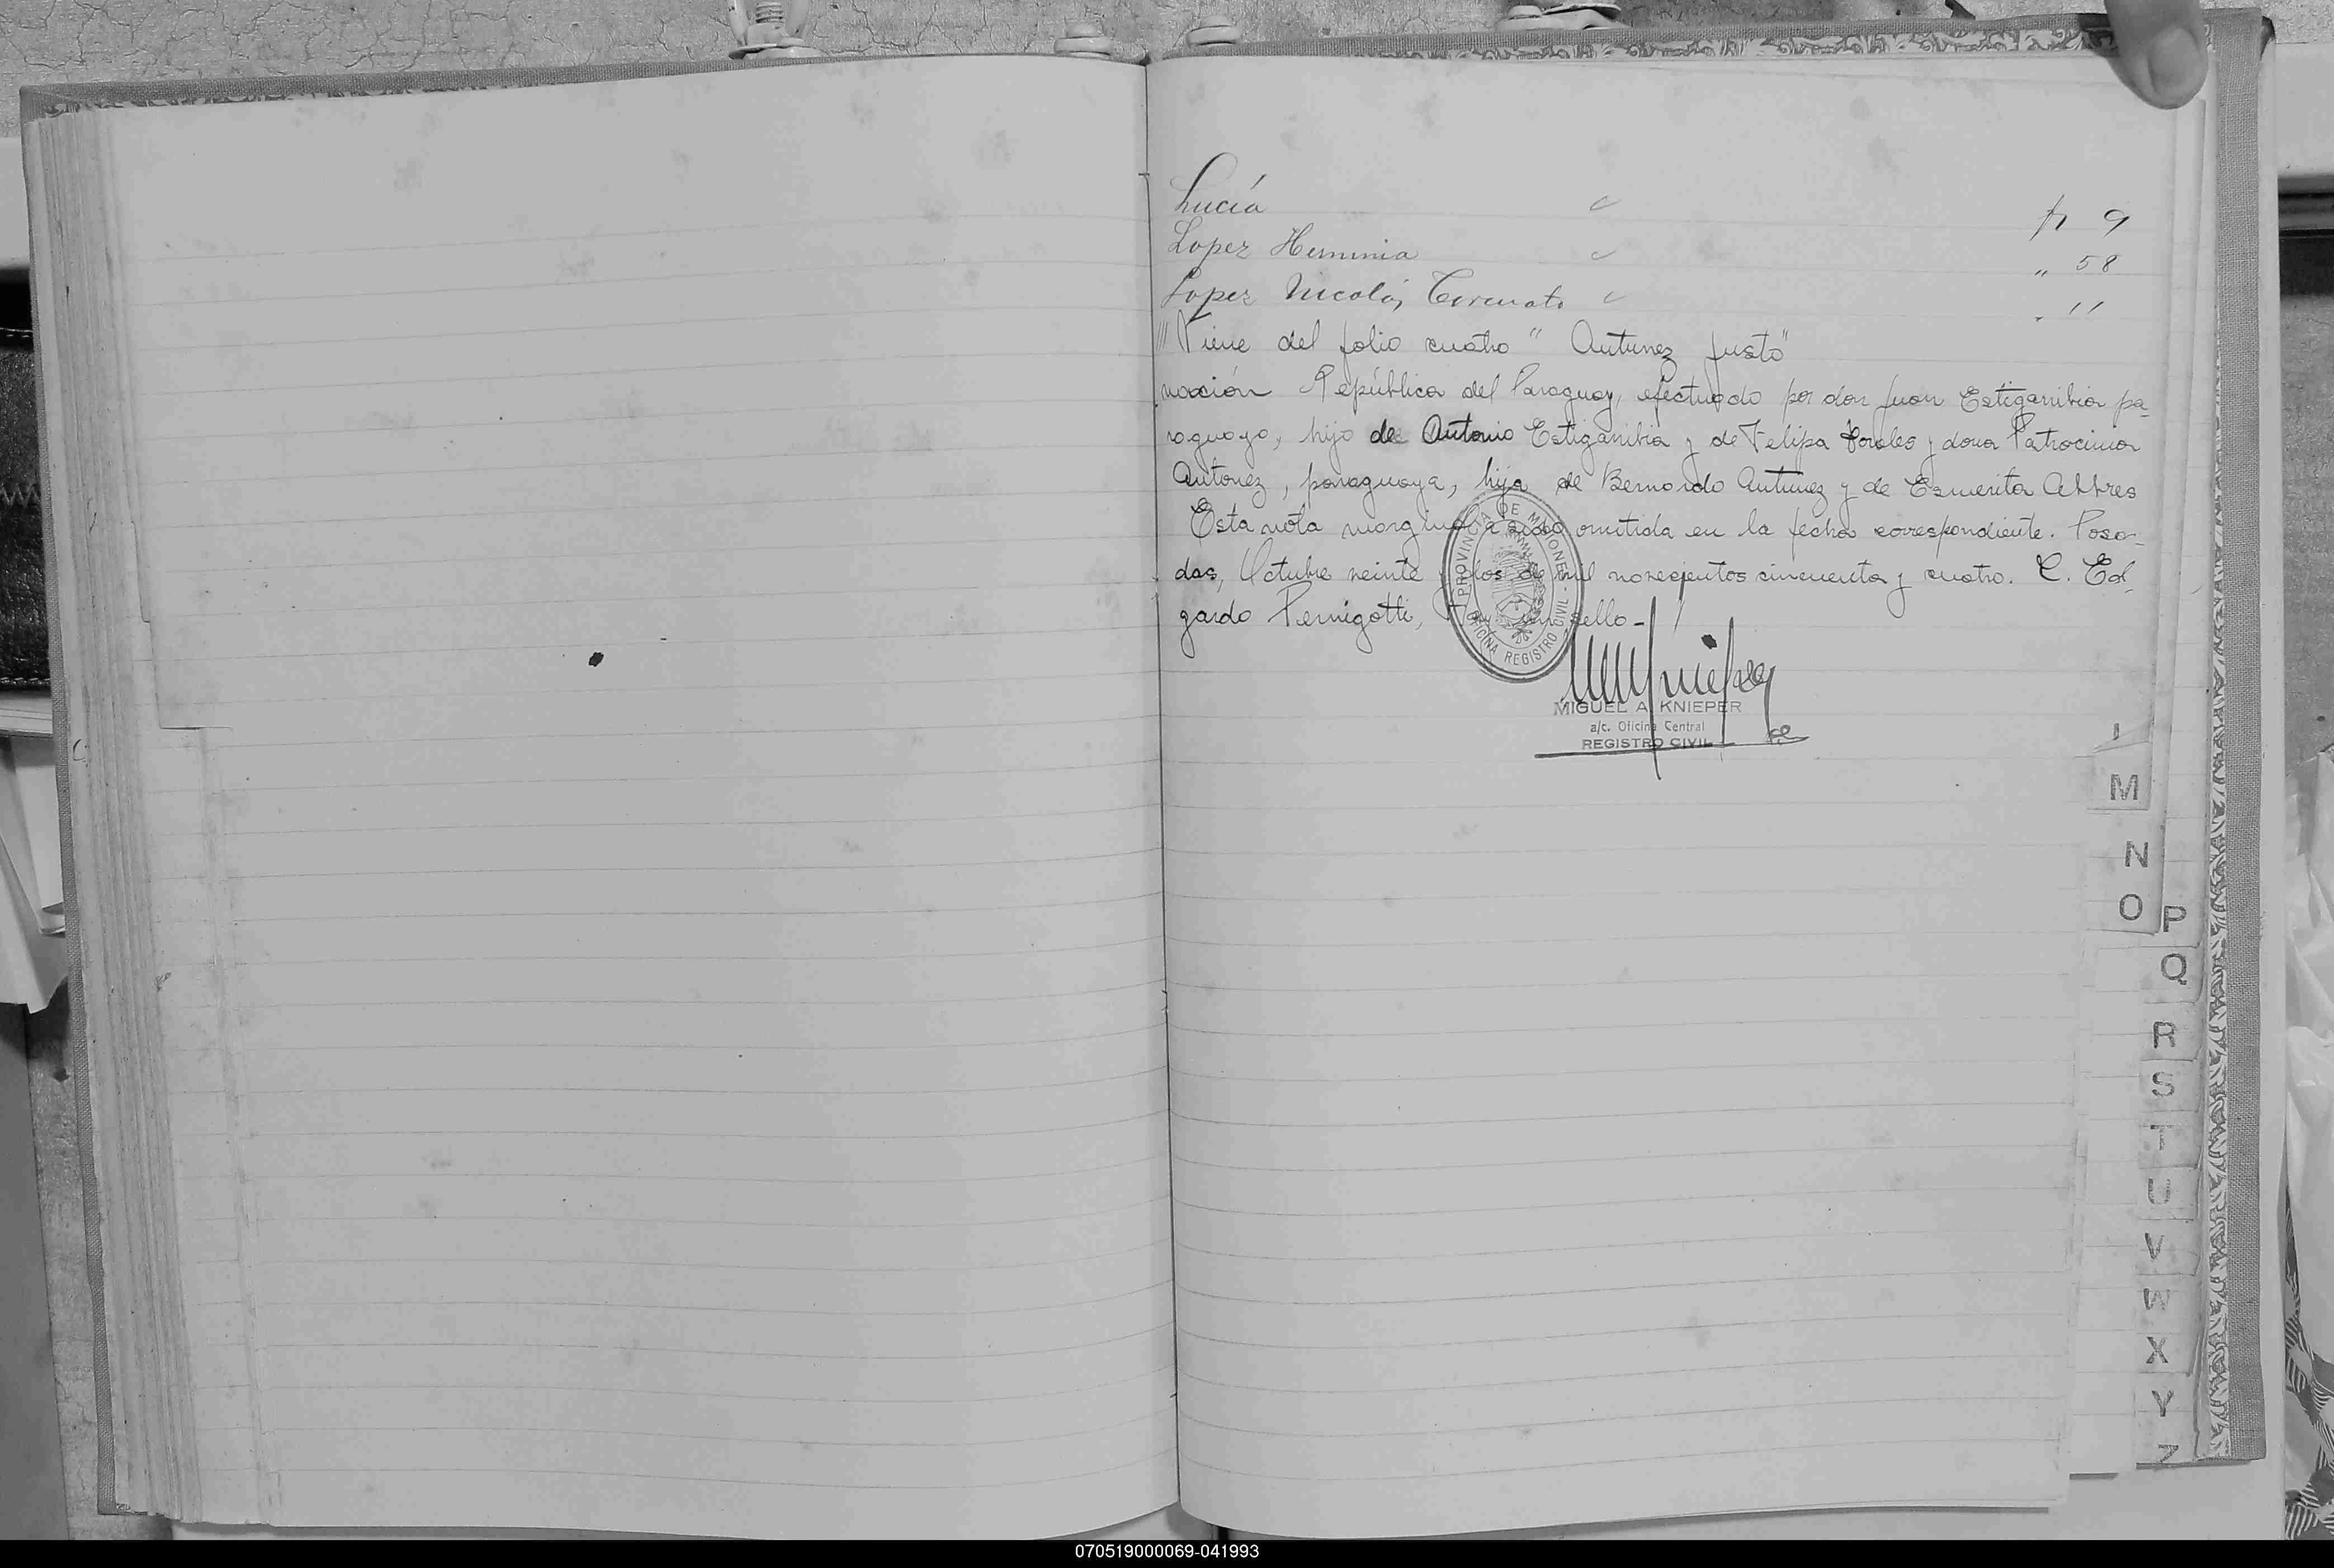 Lucía f 9
Lopez Herminia " 58
Lopez Nicolás " 11
Viene del folio cuatro " Antunez Justo"
nación República del Paraguay, efectuado por don Juan Estigarribia pa-
raguayo, hijo de Antonio Estigarribia y de Felipa y dona Patrocinia
Antonez, paraguaya, hija de Bernardo Antunez y de Esmerita
Esta nota marginal omitida en la fecha correspondiente. Posa-
das, Octubre veinte y dos de mil novecientos cincuenta y cuatro. C. Ed-
gardo Pernigotti, Hay un sello-
PROVINCIA DE MISIONES
OFICINA REGISTRO CIVIL
MIGUEL A. KNIEPER
a/c. Oficina Central
REGISTRO CIVIL
M
N
O
P
Q
R
S
T
U
V
W
X
Y
Z
070519000069-041993